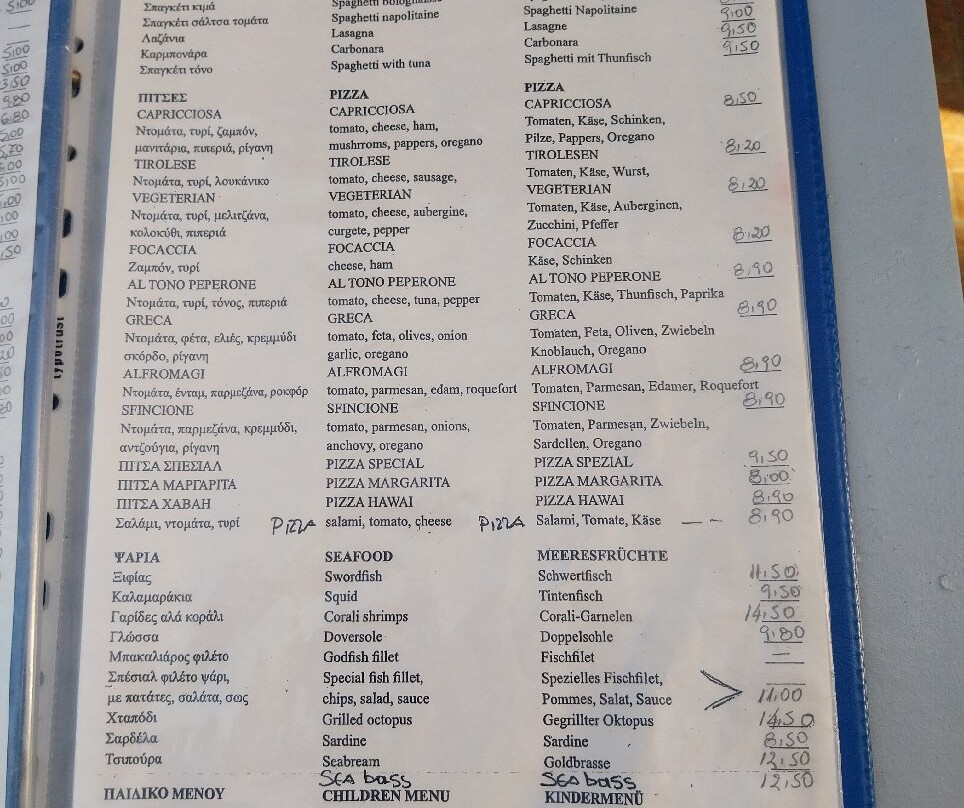 Σπαγκέτι κιμά Spaghetti Napolitaine 9,00
Σπαγκέτι σάλτσα τομάτα Spaghetti napolitaine Lasagne 9,50
Λαζάνια Lasagna Carbonara 9,50
Καρμπονάρα Carbonara Spaghetti mit Thunfisch
Σπαγκέτι τόνο Spaghetti with tuna
ΠΙΤΣΕΣ PIZZA PIZZA
CAPRICCIOSA CAPRICCIOSA CAPRICCIOSA 8,50
Ντομάτα, τυρί, ζαμπόν, tomato, cheese, ham, Tomaten, Käse, Schinken,
μανιτάρια, πιπεριά, ρίγανη mushrroms, pappers, oregano Pilze, Pappers, Oregano
TIROLESE TIROLESE TIROLESEN 8,20
Ντομάτα, τυρί, λουκάνικο tomato, cheese, sausage, Tomaten, Käse, Wurst,
VEGETERIAN VEGETERIAN VEGETERIAN 8,20
Ντομάτα, τυρί, μελιτζάνα, tomato, cheese, aubergine, Tomaten, Käse, Auberginen,
κολοκύθι, πιπεριά curgete, pepper Zucchini, Pfeffer
FOCACCIA FOCACCIA FOCACCIA 8,20
Ζαμπόν, τυρί cheese, ham Käse, Schinken
AL TONO PEPERONE AL TONO PEPERONE AL TONO PEPERONE 8,90
Ντομάτα, τυρί, τόνος, πιπεριά tomato, cheese, tuna, pepper Tomaten, Käse, Thunfisch, Paprika
GRECA GRECA GRECA 8,90
Ντομάτα, φέτα, ελιές, κρεμμύδι tomato, feta, olives, onion Tomaten, Feta, Oliven, Zwiebeln
σκόρδο, ρίγανη garlic, oregano Knoblauch, Oregano
ALFROMAGI ALFROMAGI ALFROMAGI 8,90
Ντομάτα, ένταμ, παρμεζάνα, ροκφόρ tomato, parmesan, edam, roquefort Tomaten, Parmesan, Edamer, Roquefort
SFINCIONE SFINCIONE SFINCIONE 8,90
Ντομάτα, παρμεζάνα, κρεμμύδι, tomato, parmesan, onions, Tomaten, Parmesan, Zwiebeln,
αντζούγια, ρίγανη anchovy, oregano Sardellen, Oregano
ΠΙΤΣΑ ΣΠΕΣΙΑΛ PIZZA SPECIAL PIZZA SPEZIAL 9,50
ΠΙΤΣΑ ΜΑΡΓΑΡΙΤΑ PIZZA MARGARITA PIZZA MARGARITA 8,00
ΠΙΤΣΑ ΧΑΒΑΗ PIZZA HAWAI PIZZA HAWAI 8,90
Σαλάμι, ντομάτα, τυρί PIZZA salami, tomato, cheese PIZZA Salami, Tomate, Käse 8,90
ΨΑΡΙΑ SEAFOOD MEERESFRÜCHTE
Ξιφίας Swordfish Schwertfisch 11,50
Καλαμαράκια Squid Tintenfisch 9,50
Γαρίδες αλά κοράλι Corali shrimps Corali-Garnelen 14,50
Γλώσσα Doversole Doppelsohle 9,80
Μπακαλιάρος φιλέτο Godfish fillet Fischfilet
Σπέσιαλ φιλέτο ψάρι, Special fish fillet, Spezielles Fischfilet,
με πατάτες, σαλάτα, σως chips, salad, sauce Pommes, Salat, Sauce 11,00
Χταπόδι Grilled octopus Gegrillter Oktopus 14,50
Σαρδέλα Sardine Sardine 8,50
Τσιπούρα Seabream Goldbrasse 12,50
Sea bass Sea bass 12,50
ΠΑΙΔΙΚΟ ΜΕΝΟΥ CHILDREN MENU KINDERMENÜ